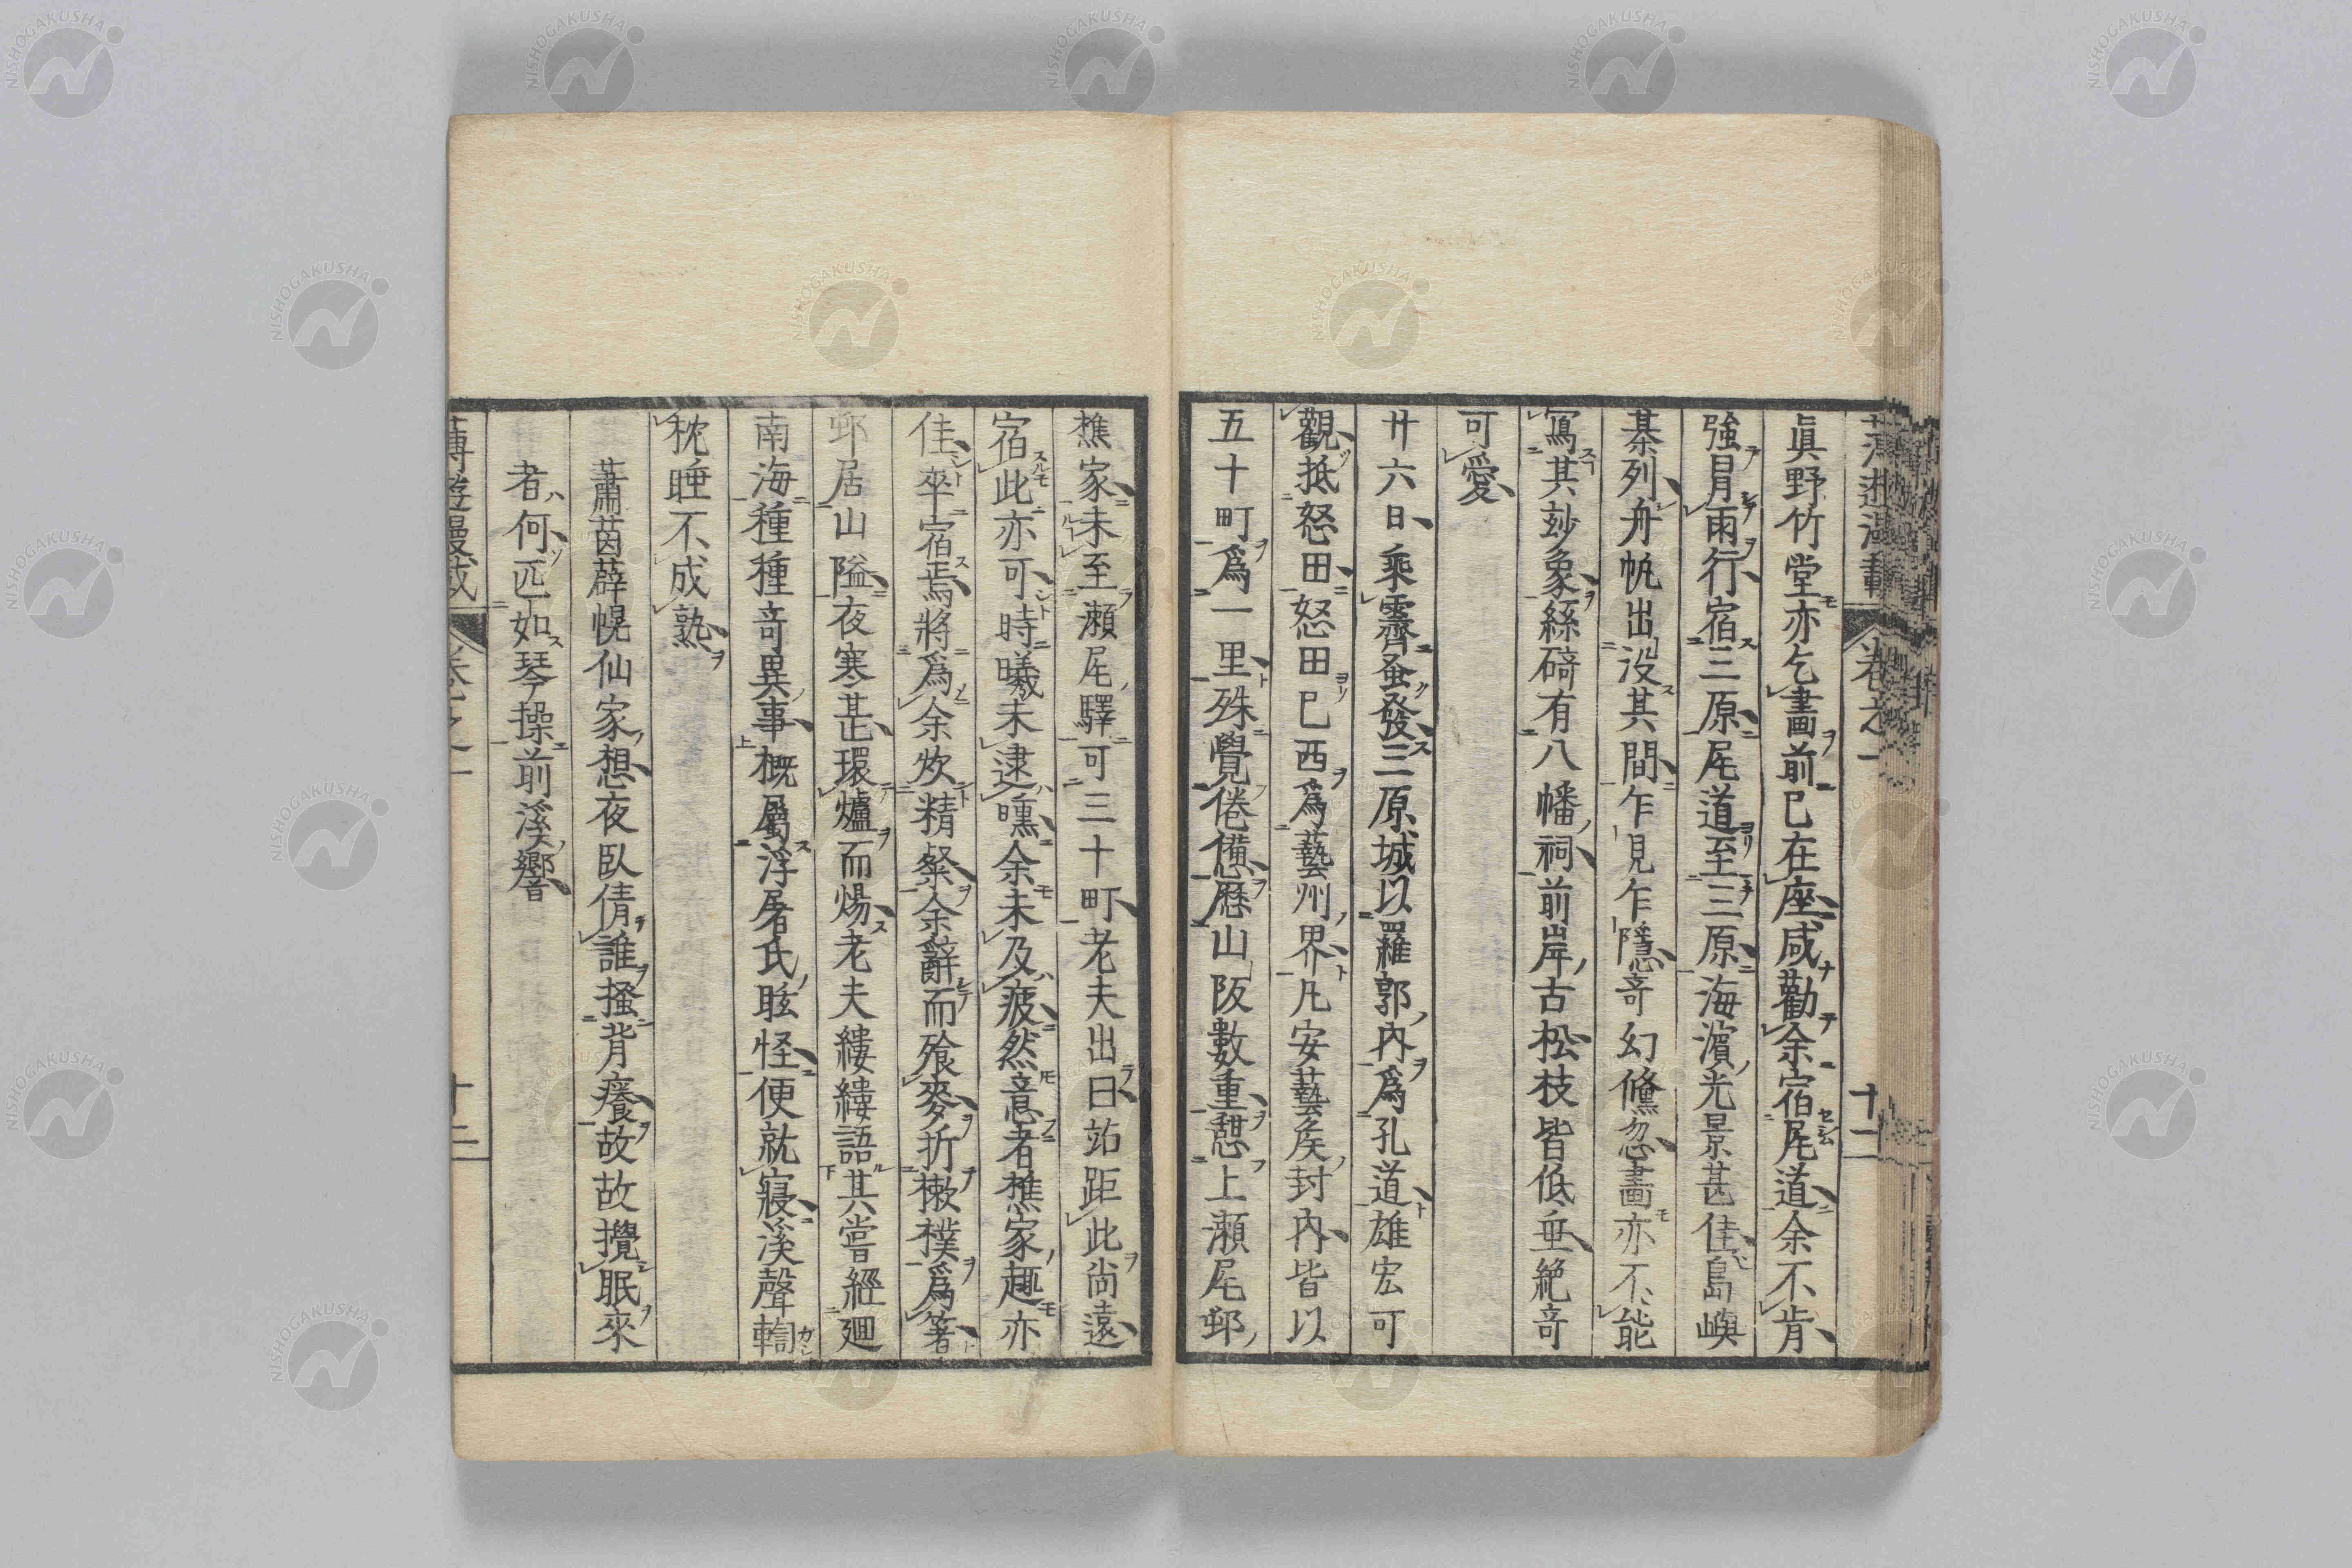 眞野竹堂亦乞畫前已在座咸勸余宿尾道余不肯
強冒雨行宿三原尾道至三原海濵光景甚佳島嶼
棊列舟帆出没其間乍見乍隱奇幻儵忽畫亦不能
寫其玅象絲碕有八幡祠前岸古松枝皆低垂絶竒
可愛
廿六日乘霽蚤發三原城以羅郭內爲孔道雄宏可
觀抵怒田怒田已西爲藝州界凡安藝矦封內皆以
五十町爲一里殊覺倦憊歷山阪數重憇上瀬尾邨
樵家未至瀬尾驛可三十町老夫出曰站距此尚遠
宿此亦可時曦未逮曛余未及疲然意者樵家趣亦
佳卒宿焉將爲余炊精粲余辭而飱麥折樕樸爲箸
邨居山隘夜寒甚環爐而煬老夫縷縷語其嘗經廻
南海種種竒異事概屬浮屠氏眩怪便就寢溪聲輷
枕睡不成熟
蕭茵薜幌仙家想夜臥倩誰搔背癢故故攪眠來
者何匹如琴操前溪響
卷之一
十二
NISHOGAKUSHA